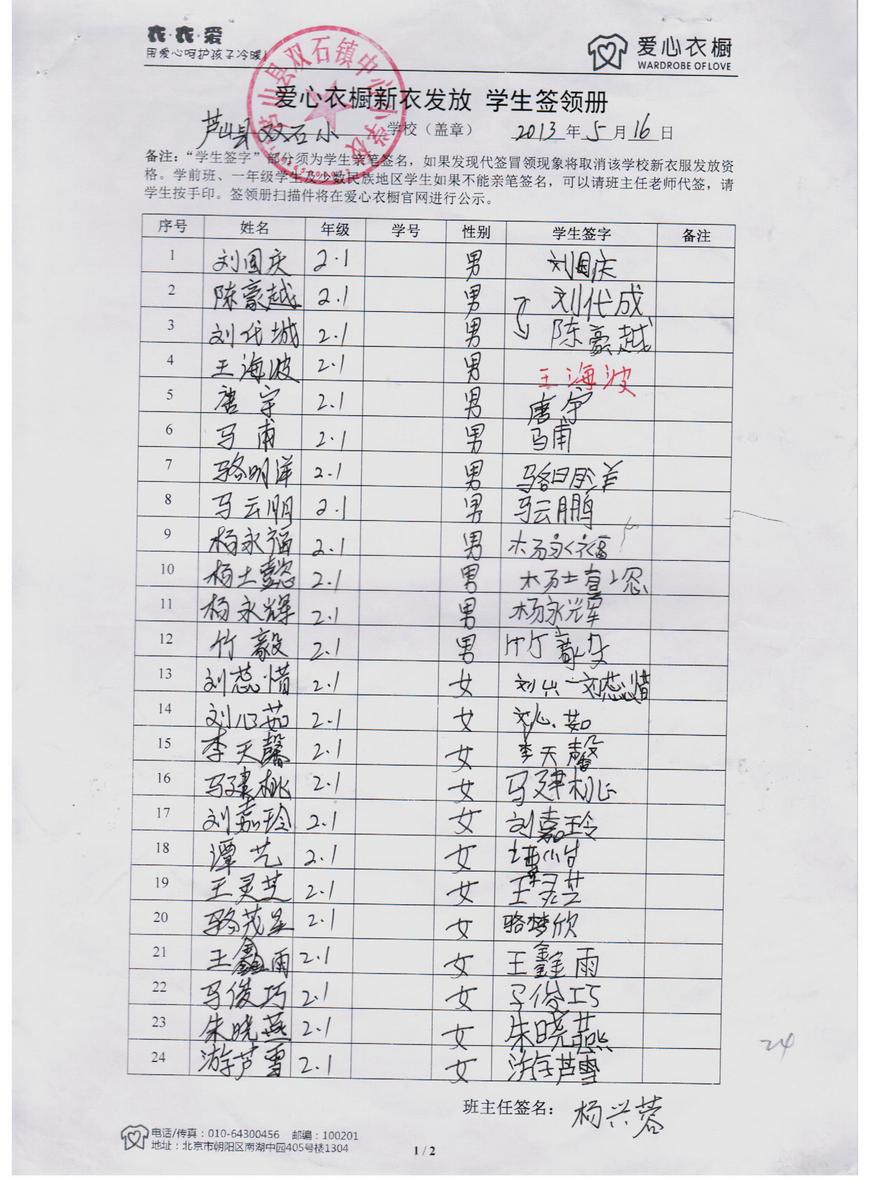 衣·衣·爱
用爱心呵护孩子冷暖!
爱心衣橱
WARDROBE OF LOVE
芦山县双石镇中心小学校
爱心衣橱新衣发放 学生签领册
芦山县双石小 学校（盖章） 2013 年 5 月 16 日
备注：“学生签字”部分须为学生亲笔签名，如果发现代签冒领现象将取消该学校新衣服发放资
格。学前班、一年级学生及少数民族地区学生如果不能亲笔签名，可以请班主任老师代签，请
学生按手印。签领册扫描件将在爱心衣橱官网进行公示。
序号 姓名 年级 学号 性别 学生签字 备注
1 刘国庆 2.1 男 刘国庆
2 陈豪越 2.1 男 刘代成
3 刘代城 2.1 男 陈豪越
4 王海波 2.1 男 王海波
5 唐宇 2.1 男 唐宇
6 马甫 2.1 男 马甫
7 骆明洋 2.1 男 骆明洋
8 马云朋 2.1 男 马云鹏
9 杨永福 2.1 男 杨永福
10 杨土懿 2.1 男 杨土懿
11 杨永辉 2.1 男 杨永辉
12 竹毅 2.1 男 竹毅
13 刘蕊惜 2.1 女 刘蕊惜
14 刘心茹 2.1 女 刘心茹
15 李天馨 2.1 女 李天馨
16 马建桃 2.1 女 马建桃
17 刘嘉玲 2.1 女 刘嘉玲
18 谭艺 2.1 女
19 王灵芝 2.1 女 王灵芝
20 骆茂星 2.1 女 骆梦欣
21 王鑫雨 2.1 女 王鑫雨
22 马俊巧 2.1 女 马俊巧
23 朱晓燕 2.1 女 朱晓燕
24 游芦雪 2.1 女 游芦雪
24
班主任签名： 杨兴蓉
电话/传真：010-64300456 邮编：100201
地址：北京市朝阳区南湖中园405号楼1304
1 / 2